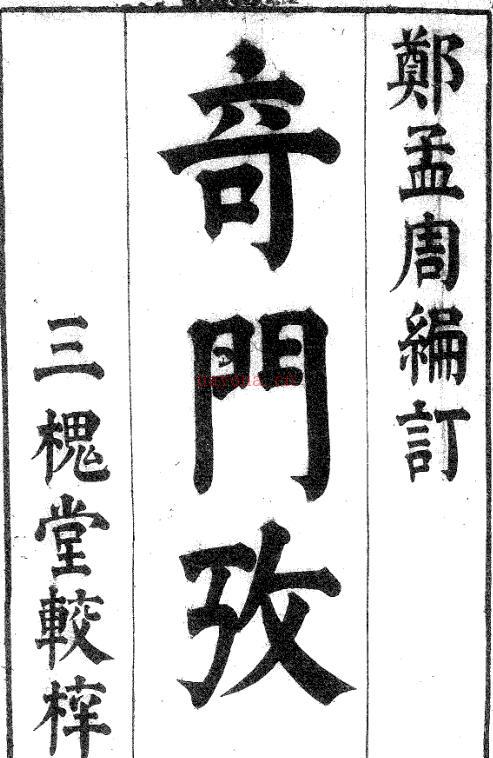 鄭孟周編訂
竒門攷
三槐堂較梓